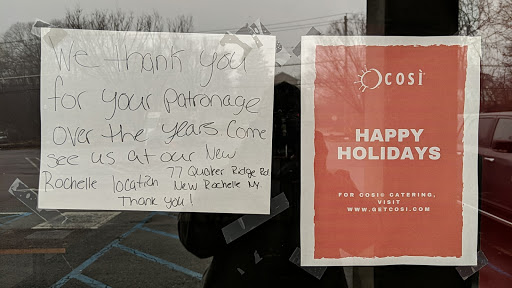 We thank you
for your patronage
over the years. Come
see us at our New
Rochelle location 77 Quaker Ridge Rd
New Rochelle NY.
Thank you!
COSÌ
HAPPY
HOLIDAYS
FOR COSI® CATERING,
VISIT
WWW.GETCOSI.COM